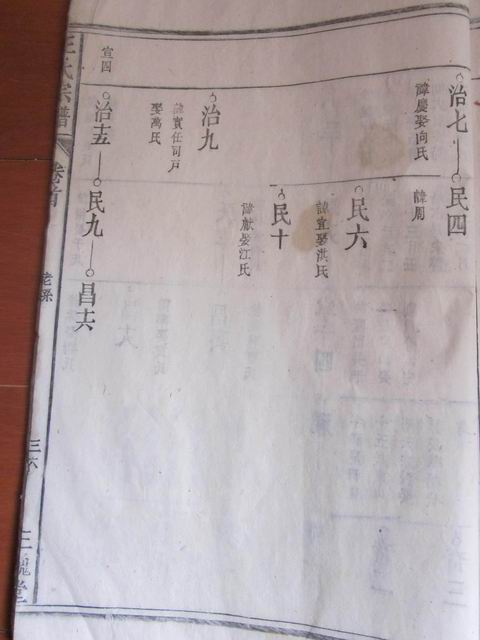 治七 民四
諱慶娶向氏
諱周
民六
諱宜娶洪氏
民十
諱献娶江氏
治九
諱實任司戸
娶萬氏
宣四
治十五 民九 昌十六
王氏宗譜
卷首
老系
三六
三槐堂